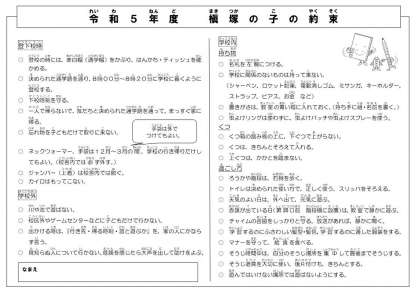 令和５年度　槇塚の子の約束
登下校時
○ 登校の時には、赤白帽（通学帽）をかぶり、はんかち・ティッシュを確かめる。
○ 決められた通学路を通り、８時００分～８時２０分に学校に着くように登校する。
○ 下校時刻を守る。
○ 一人で帰らないで、友だちと決められた通学路を通って、まっすぐ家に帰る。
○ 忘れ物を子どもだけで取りに来ない。
手袋は冬でつけてもよい。
○ ネックウォーマー、手袋は１２月～３月の間、学校の行き帰りだけしてもよい。（校舎内では必ず外す。）
○ ジャンパー（上着）は校舎内では脱ぐ。
○ カイロはもってこない。
学校外
○ 川や池で遊ばない。
○ 校区外やゲームセンターなどに子どもだけで行かない。
○ 出かける時は、（行き先・帰る時刻・誰と遊ぶか）を、家の人にかならず言う。
○ 見知らぬ人について行かない。危険を感じたら大声を出して助けをよぶ。
なまえ
学校内
持ち物
○ 名札を左胸につける。
○ 学校に関係のないものは持って来ない。
（シャーペン、ロケット鉛筆、電動消しゴム、ミサンガ、キーホルダー、ストラップ、ピアス、お金　など）
○ 置きがさは、教室の青い箱に入れておく。（持ち手に組・名前を書く。）
○ 虫よけリングは済ませずに、虫よけパッチや虫よけスプレーを使う。
くつ
○ くつ箱の踏み板の上に、下ぐつで上がらない。
○ くつは、きちんとそろえて入れる。
○ 上ぐつは、かかとを踏まない。
過ごし方
○ ろうかや階段は、右側を歩く。
○ トイレは決められた使い方で、正しく使う。スリッパをそろえる。
○ 天気のよい日は、外へ出て、元気に遊ぶ。
○ チャイムの合図をしっかり守る。放送があれば、静かに聞く。
○ 学習するのにふさわしい髪型・服装、学習するのに適した服装をする。
○ マナーを守って、給食を食べる。
○ そうじ時間中は、自分のそうじ場所を集中して最後までそうじする。
○ そうじ道具を大切に使い、後片付けも、きちんとする。
○ 遊んではいけない場所では遊ばないようにする。